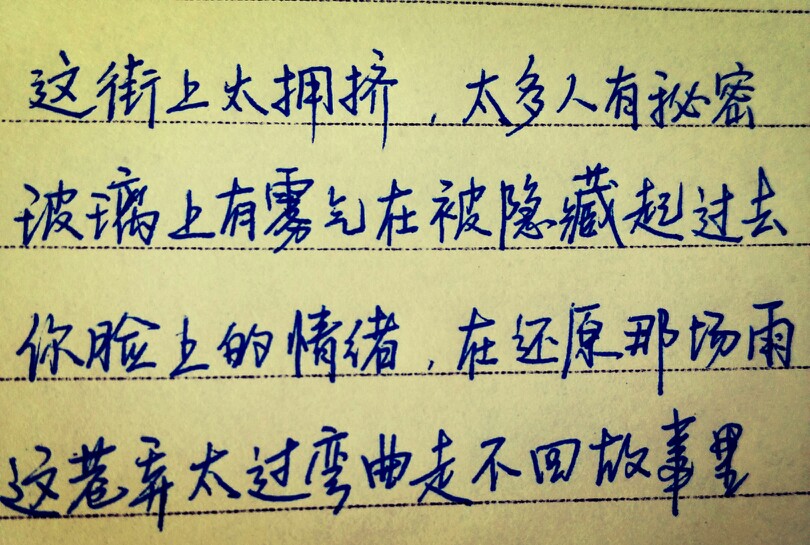 这街上太拥挤，太多人有秘密
玻璃上有雾气在被隐藏起过去
你脸上的情绪，在还原那场雨
这巷弄太过弯曲走不回故事里